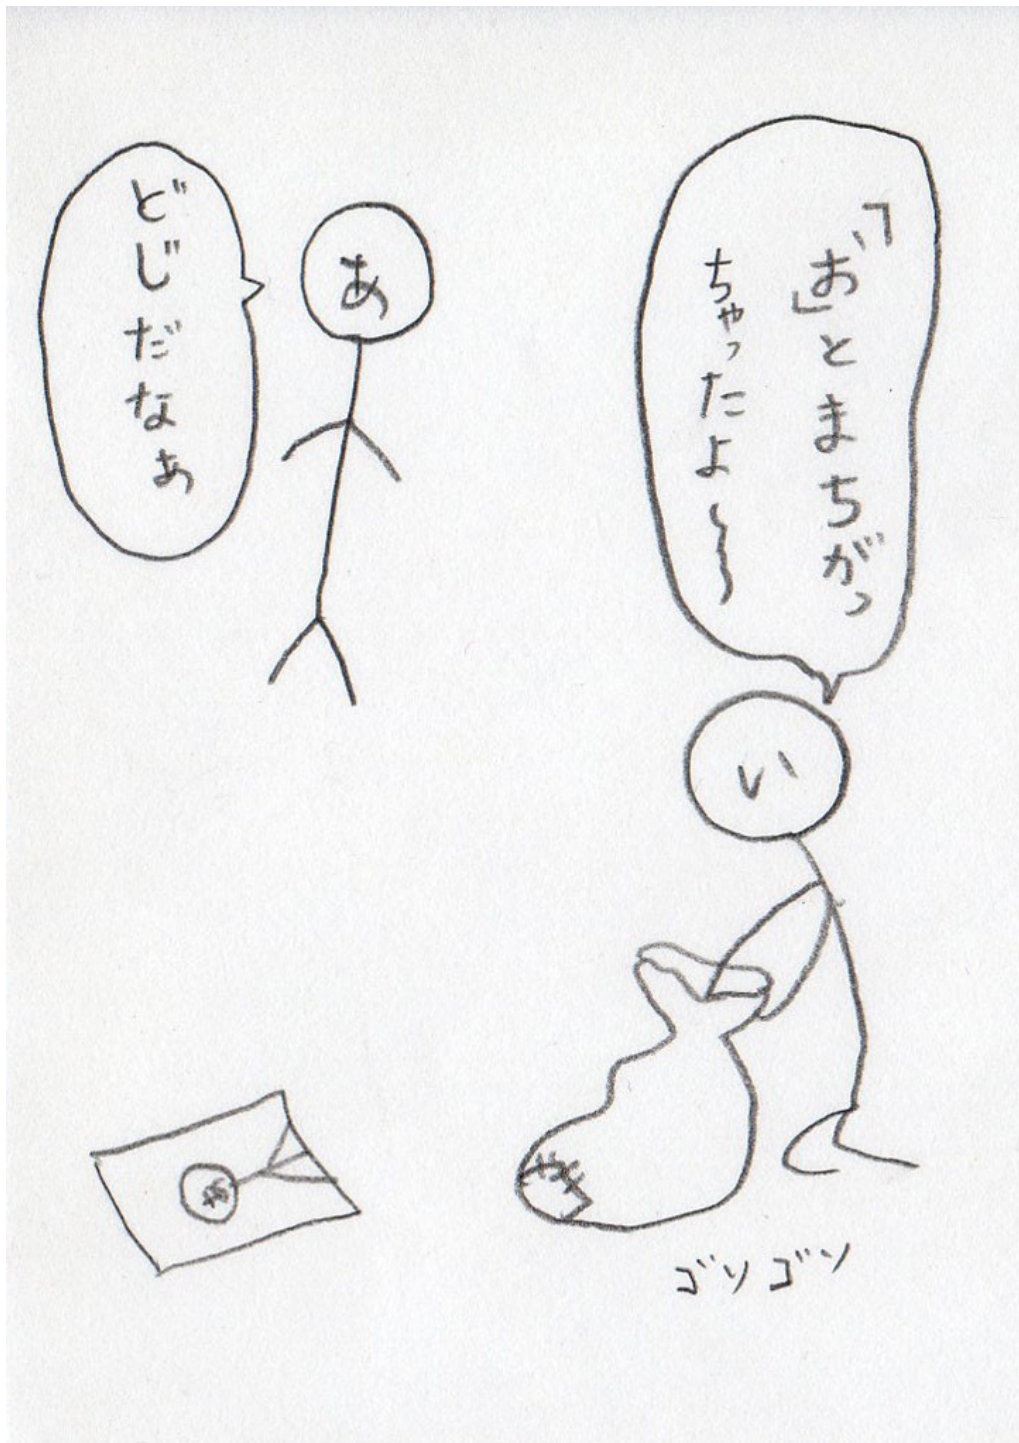 「お」とまちがっ
ちゃったよ〜
い
あ
どじだなぁ
ゴソゴソ